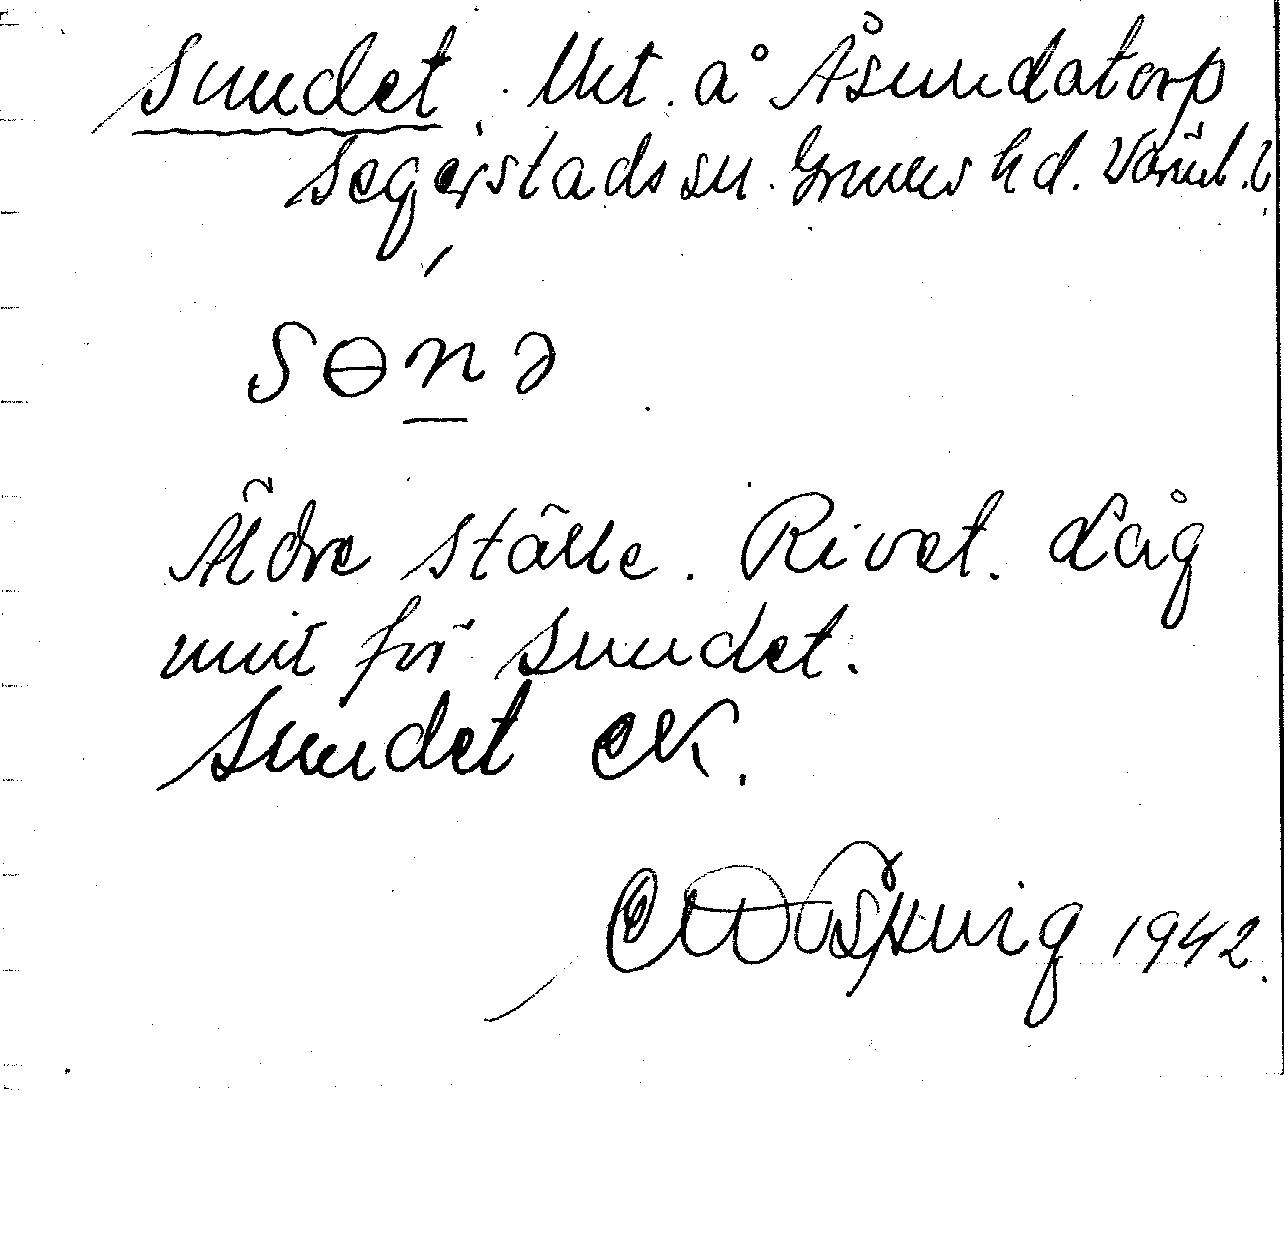 Sundet. Utt. å Åsundatorp
Segerstads sn. Grums hd. Värml. l.
sɵnə
Äldre ställe. Rivet. Låg
mitt för sundet.
Sundet EK.
1942.